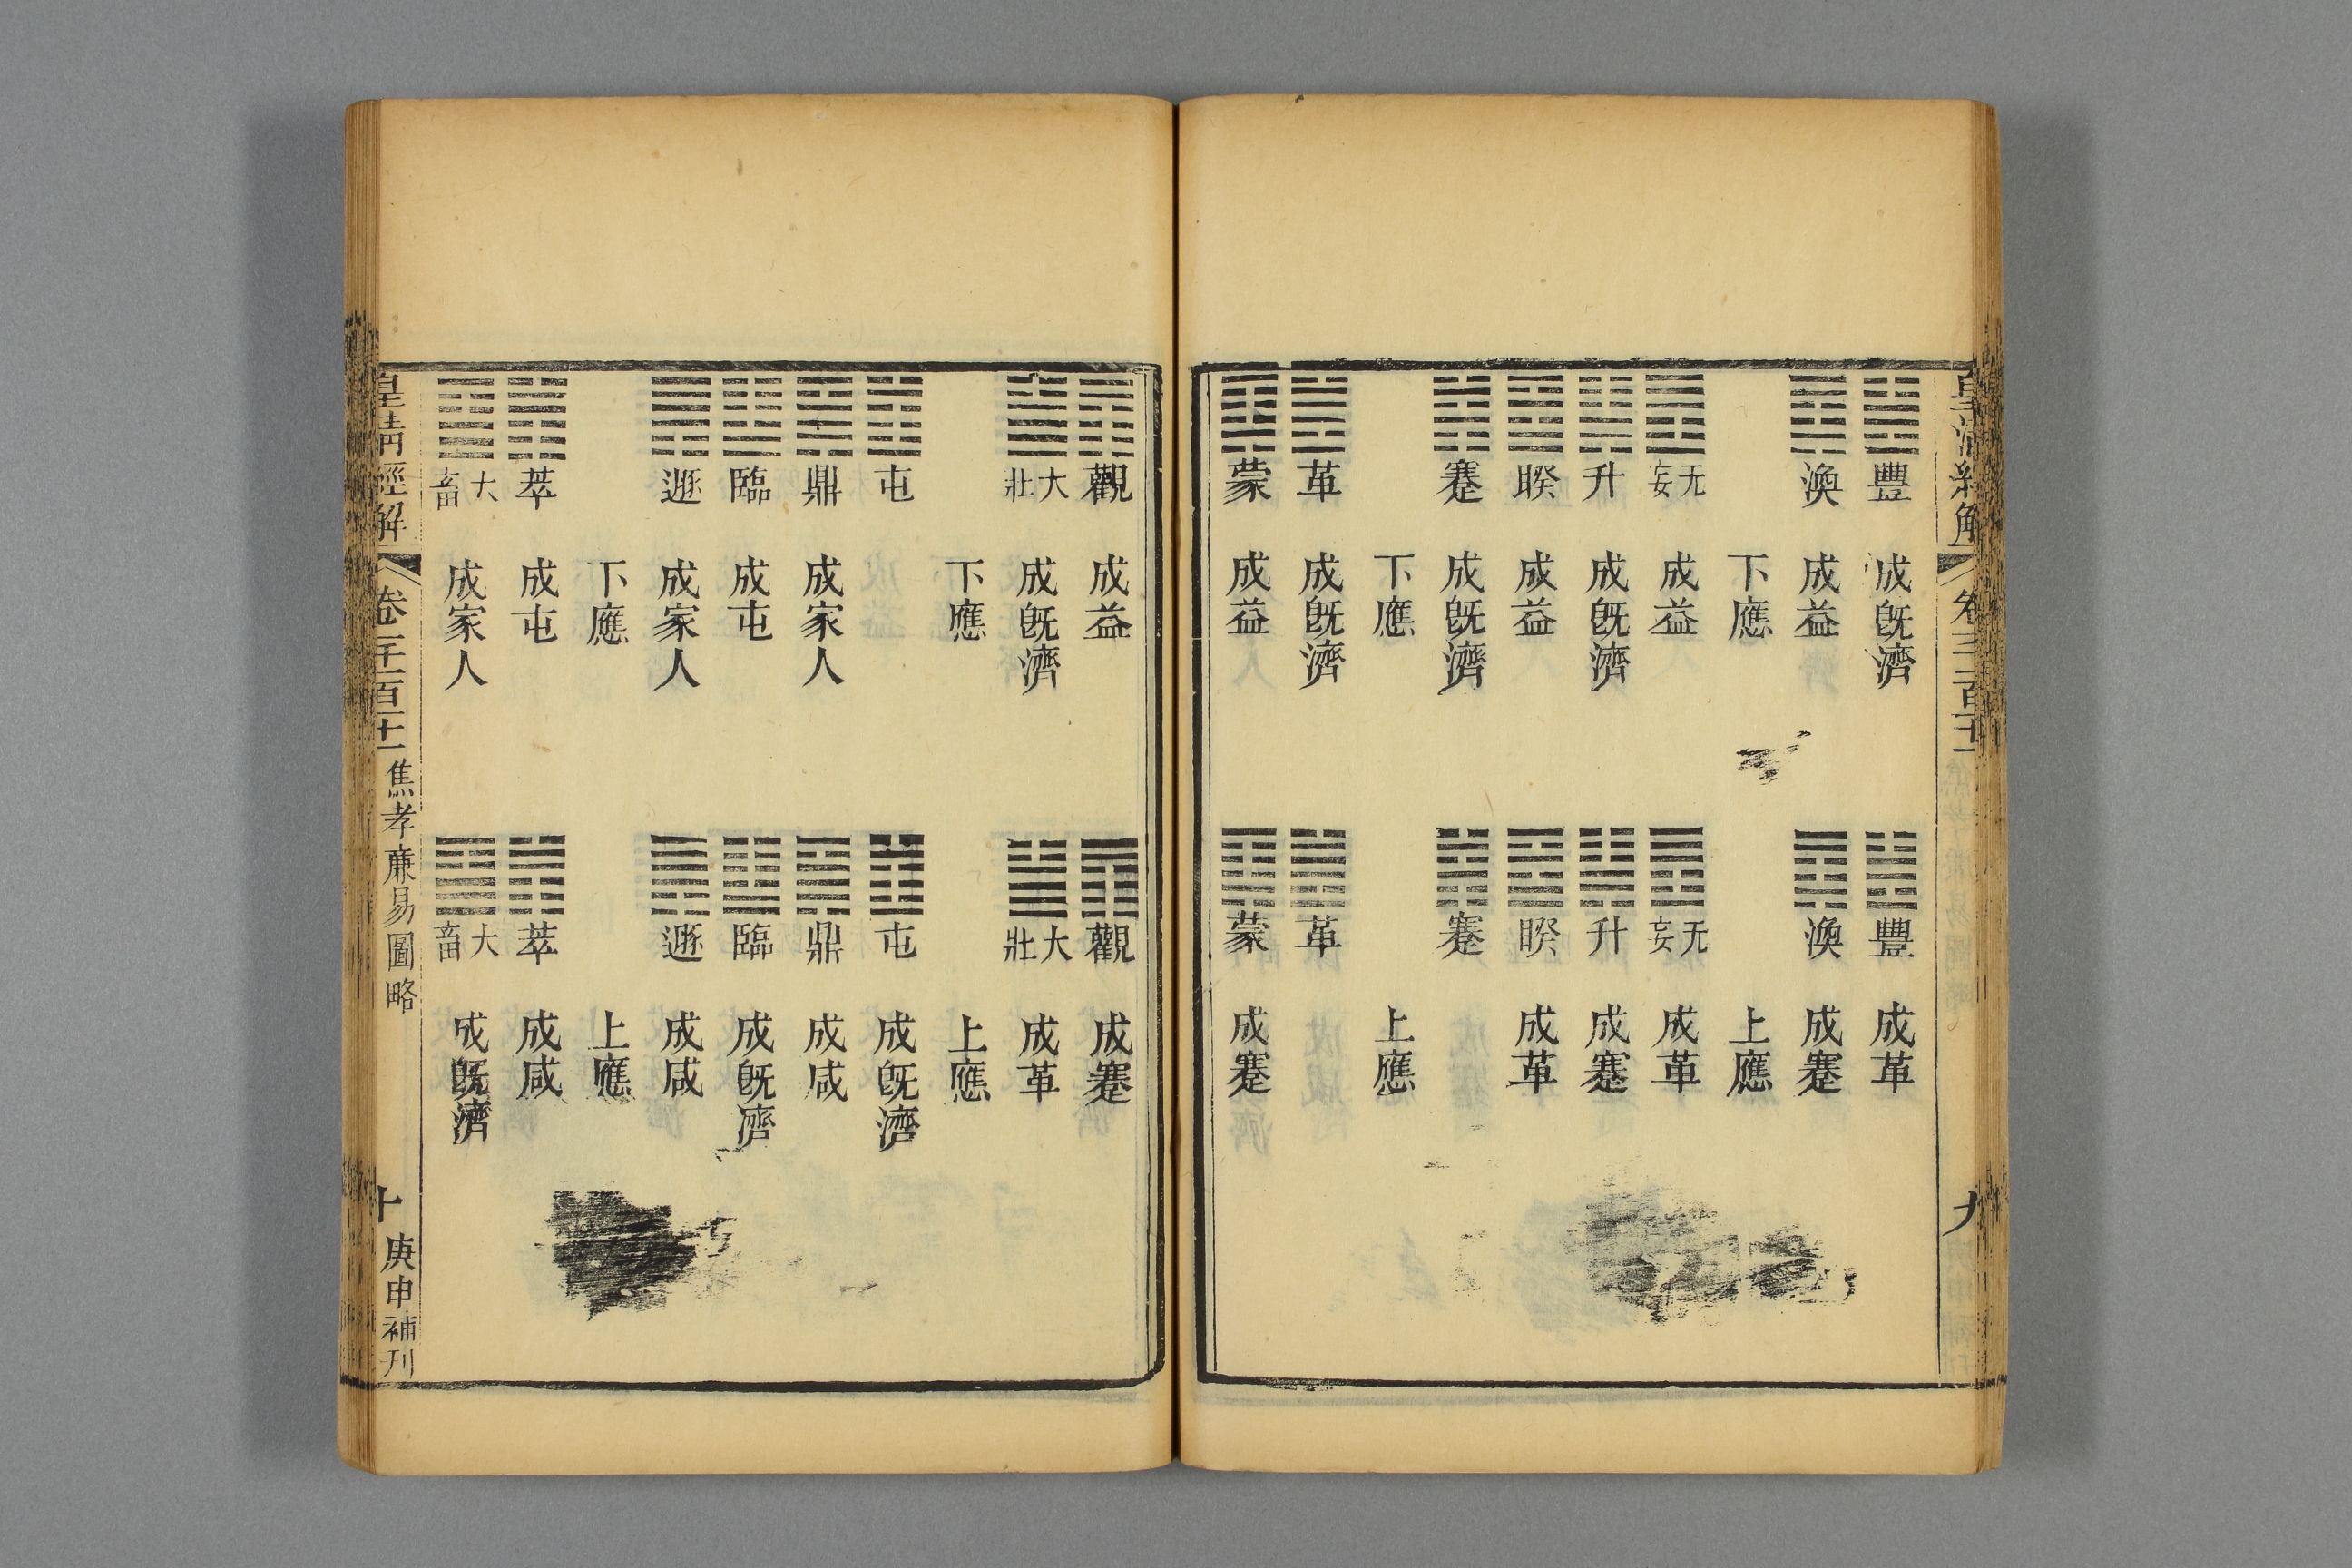 皇清經解 九
豐 成既濟 豐 成革
渙 成益 渙 成蹇
下應 上應
无妄 成益 无妄 成革
升 成既濟 升 成蹇
睽 成益 睽 成革
蹇 成既濟 蹇
下應 上應
革 成既濟 革
蒙 成益 蒙 成蹇
觀 成益 觀 成蹇
大壯 成既濟 大壯 成革
下應 上應
屯 屯 成既濟
鼎 成家人 鼎 成咸
臨 成屯 臨 成既濟
遯 成家人 遯 成咸
下應 上應
萃 成屯 萃 成咸
大畜 成家人 大畜 成既濟
皇清經解 卷一千一百十一 焦孝廉易圖略 十 庚申補刊